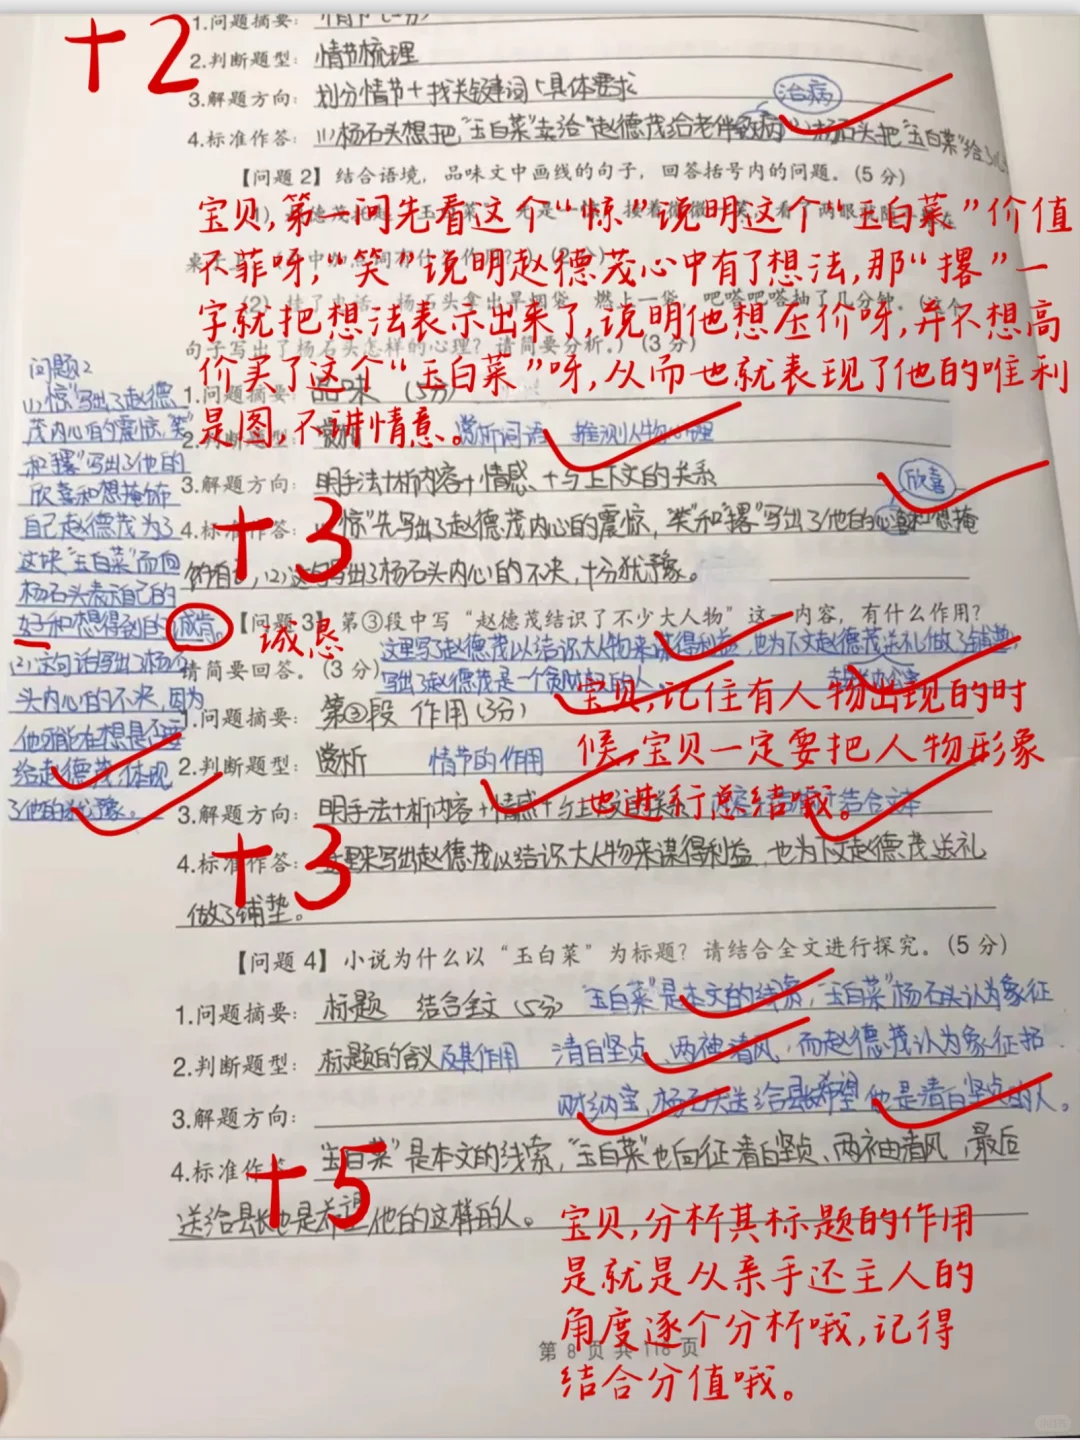 +2
1.问题摘要:
2.判断题型: 情节梳理
3.解题方向: 划分情节+找关键词+具体要求
治病
4.标准作答: (1)杨石头想把“玉白菜”卖给赵德茂给老伴 杨石头把“玉白菜”给
【问题2】结合语境，品味文中画线的句子，回答括号内的问题。(5分)
宝贝,第一问先看这个“惊”说明这个“玉白菜”价值
不菲呀,“笑”说明赵德茂心中有了想法,那“撂”一
(2)挂了电话，杨石头拿出旱烟袋，燃上一袋，吧嗒吧嗒抽了几分钟。(这个
字就把想法表示出来了,说明他想压价呀,并不想高
句子写出了杨石头怎样的心理？请简要分析。)(3分)
价买了这个“玉白菜”呀,从而也就表现了他的唯利
是图,不讲情意。
1.问题摘要: 品味 (5分)
2.判断题型: 赏析 赏析词语 推测人物心理
3.解题方向: 明手法+析内容+情感+与上下文的关系
欣喜
4.标准作答: (1)“惊”先写出了赵德茂内心的震惊，“笑”和“撂”写出了他的 和想掩
饰自己,(2)这句写出了杨石头内心的不决,十分犹豫。
+3
问题2
(1)“惊”写出了赵德
茂内心的震惊,“笑”
和“撂”写出了他的
欣喜和想掩饰
自己赵德茂为了
这块“玉白菜”而向
杨石头表示自己的
好和想得到的诚肯。
诚恳
(2)这句话写出了杨石
头内心的不决,因为
他可能在想是否要
给赵德茂,体现
了他的犹豫。
【问题3】第③段中写“赵德茂结识了不少大人物”这一内容，有什么作用？
请简要回答。(3分)
这里写了赵德茂以结识大人物来谋得利益,也为下文赵德茂送礼做了铺垫,
写出了赵德茂是一个贪财 的人
宝贝,记住有人物出现的时
候,宝贝一定要把人物形象
也进行总结哦。
1.问题摘要: 第③段 作用(3分)
2.判断题型: 赏析 情节的作用
3.解题方向: 明手法+析内容+情感+与上下文的关系 内容 结合文本
4.标准作答: 这里来写出赵德茂以结识大人物来谋得利益,也为下文赵德茂送礼
做了铺垫。
+3
【问题4】小说为什么以“玉白菜”为标题？请结合全文进行探究。(5分)
1.问题摘要: 标题 结合全文(5分) “玉白菜”是本文的线索,“玉白菜”杨石头认为象征
2.判断题型: 标题的含义及其作用 清白坚贞、两袖清风,而赵德茂认为象征招
3.解题方向: 财纳宝,杨石头送给县长希望他是清白坚贞的人。
4.标准作答: “玉白菜”是本文的线索,“玉白菜”也向征清白坚贞、两袖清风,最后
送给县长也是希望他的这样的人。
+5
宝贝,分析其标题的作用
是就是从亲手还主人的
角度逐个分析哦,记得
结合分值哦。
第 8 页 共 118 页